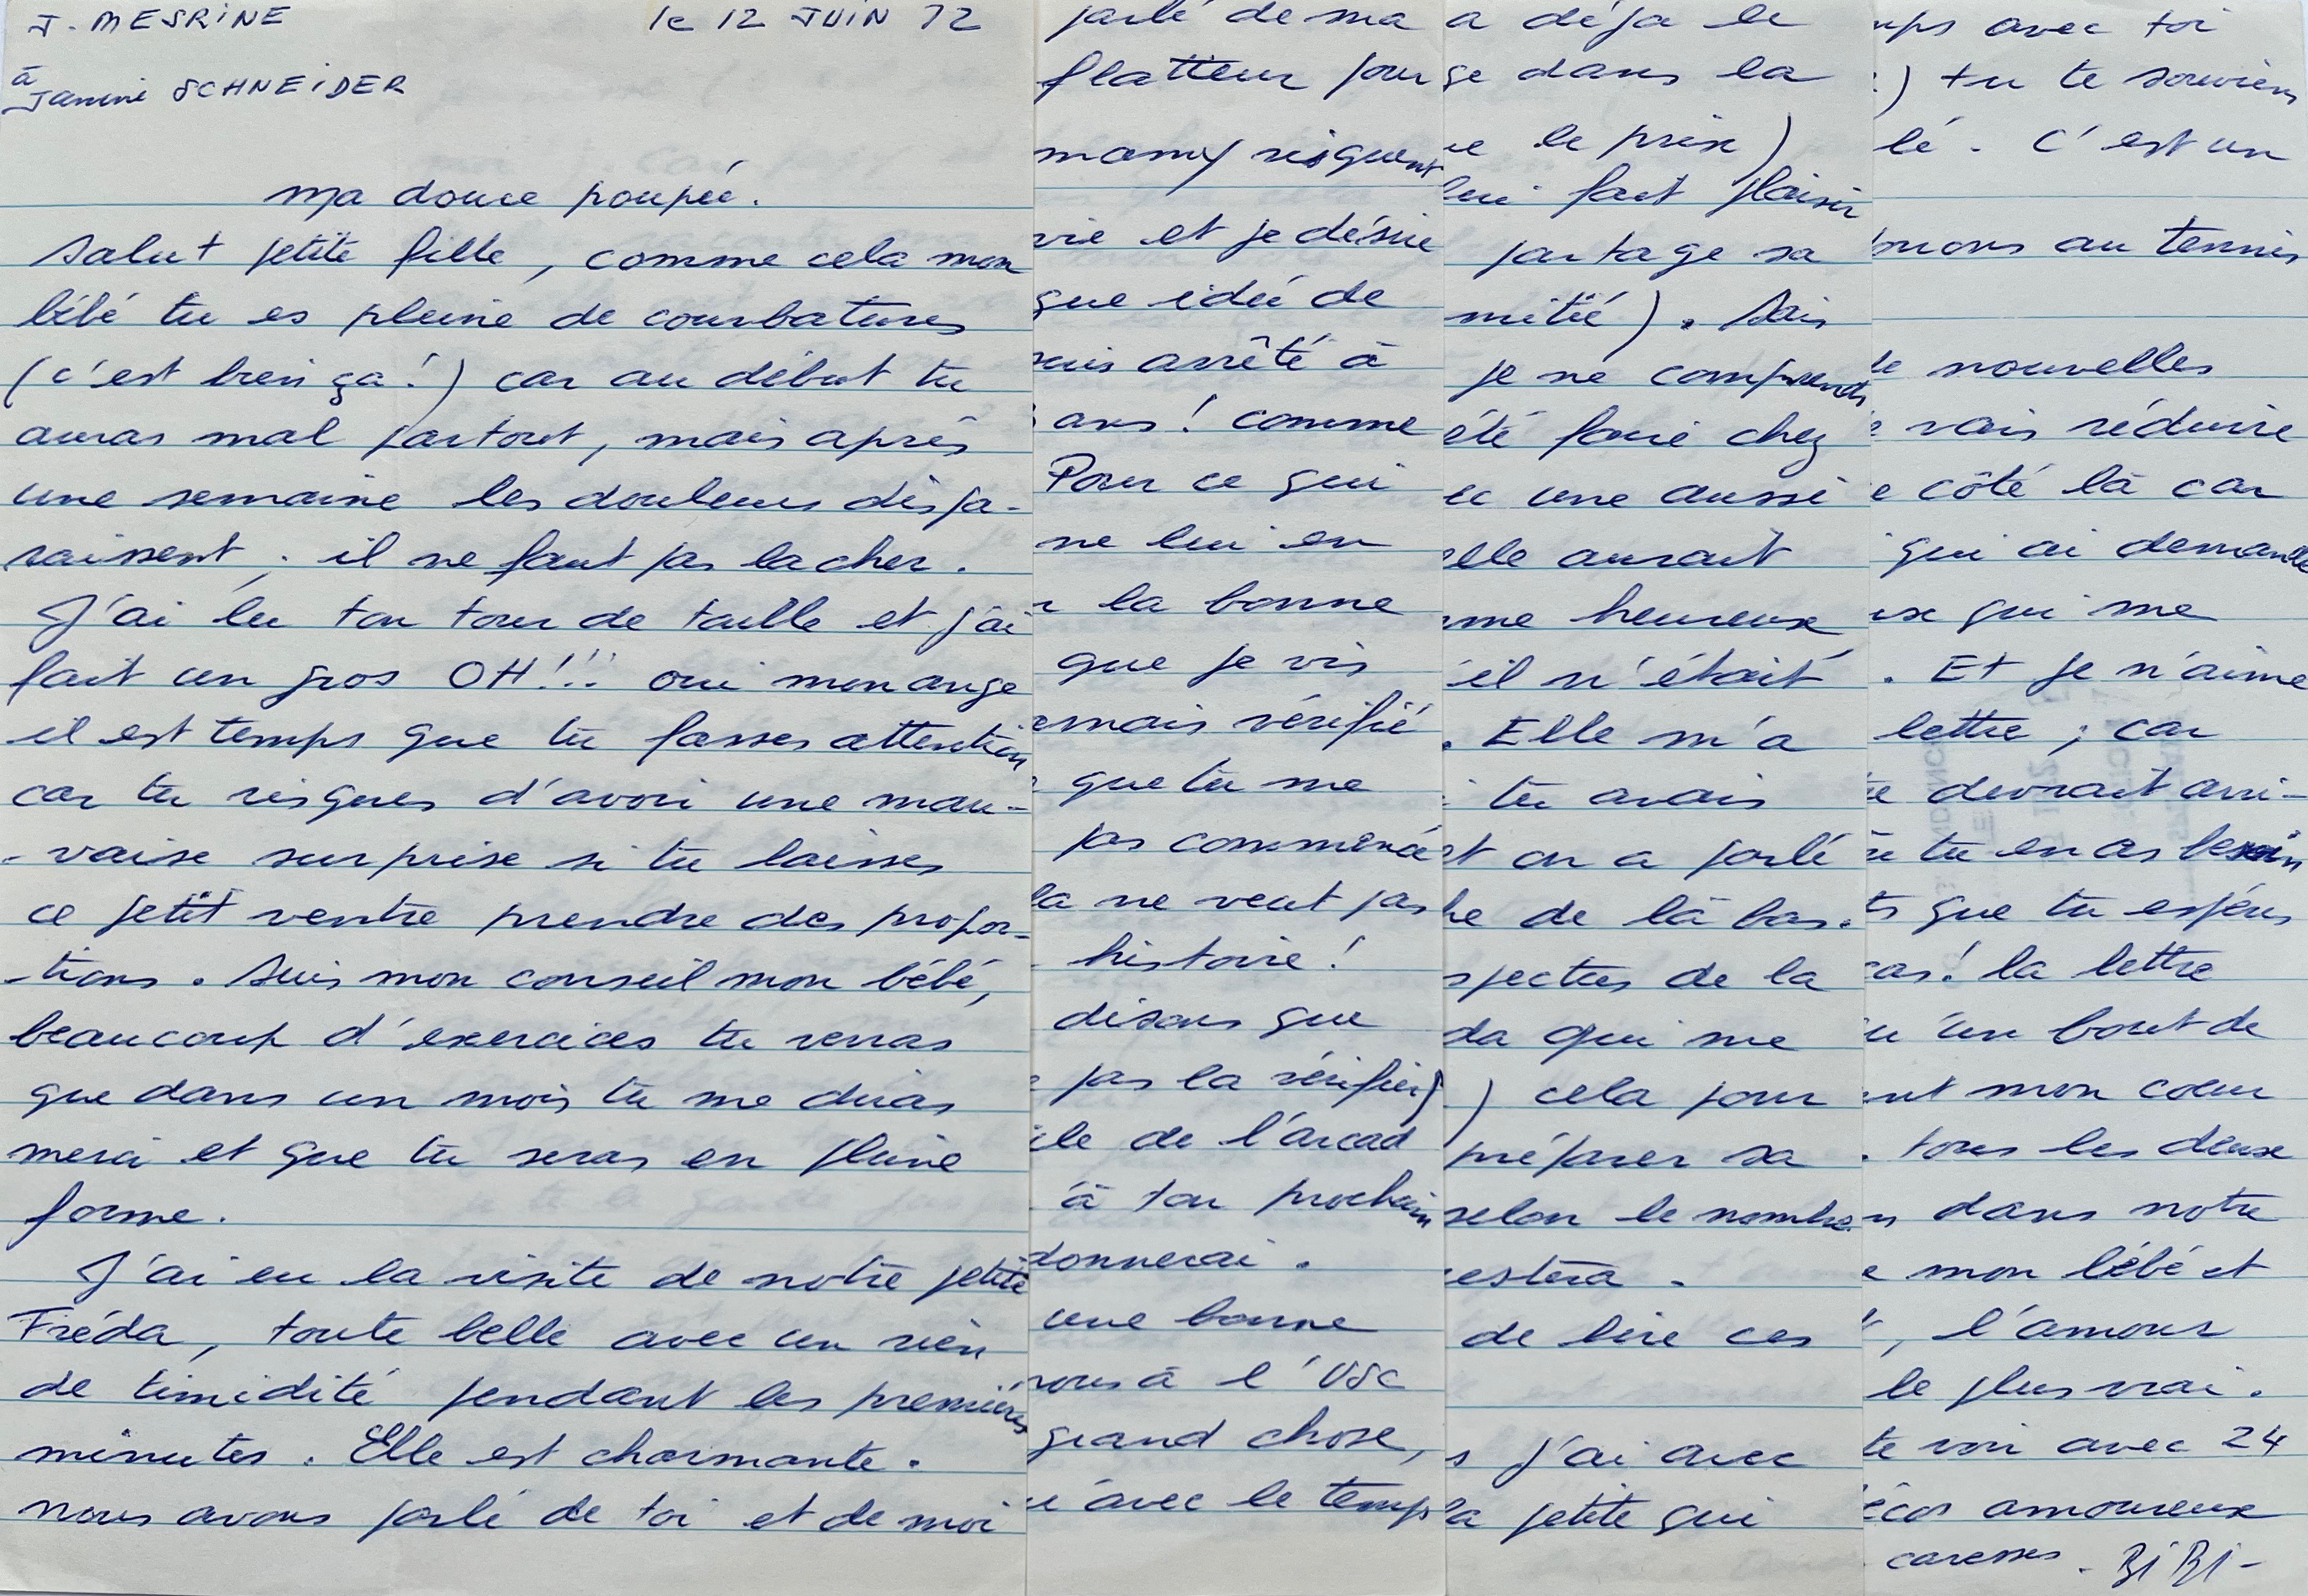 J. MESRINE
le 12 JUIN 72
à
Janine SCHNEIDER
ma douce poupée.
Salut petite fille, comme cela mon
bébé tu es pleine de courbatures
(c'est bien ça!) car au début tu
auras mal partout, mais après
une semaine les douleurs dispa-
raissent, il ne faut pas lacher.
J'ai lu ton tour de taille et j'ai
fait un gros OH!!! oui mon ange
il est temps que tu fasses attention
car tu risques d'avoir une mau-
-vaise surprise si tu laisses
ce petit ventre prendre des propor-
-tions. Suis mon conseil mon bébé,
beaucoup d'exercices tu verras
que dans un mois tu me diras
merci et que tu seras en pleine
forme.
J'ai eu la visite de notre petite
Fréda, toute belle avec un rien
de timidité pendant les premières
minutes. Elle est charmante.
nous avons parlé de toi et de moi
parlé de ma
flatteur pour
mamy risquent
vie et je désire
que idée de
suis arrêté à
ans! comme
Pour ce qui
ne lui en
la bonne
que je vis
amais vérifié
que tu me
pas commencé
la ne veut pas
histoire!
disons que
pas la vérifier)
le de l'arcad
à ton prochain
donnerai.
une bonne
vous à l'USC
grand chose,
avec le temps
a déja le
ge dans la
le prix)
lui fait plaisir
partage sa
mitié). Sais
je ne comprends
été foui chez
ec une aussi
elle aurait
me heureux
'il n'était
. Elle m'a
tu avais
t on a parlé
he de là bas.
spectes de la
da qui me
) cela pour
préparer sa
selon le nombre
estera.
de lire ces
s j'ai avec
la petite qui
mps avec toi
) tu te souviens
lé. C'est un
ouons au tennis
de nouvelles
vais réduire
e côté là car
qui ai demandé
use qui me
. Et je n'aime
lettre ; car
te devrait arri-
tu en as besoin
ts que tu espères
cas! la lettre
u'un bout de
ent mon cœur
. tous les deux
dans notre
e mon bébé et
, l'amour
le plus vrai.
te voir avec 24
écor amoureux
caresses. BiBi-